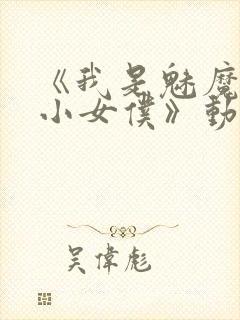 《我是魅魔
小女僕》動
吴偉彪